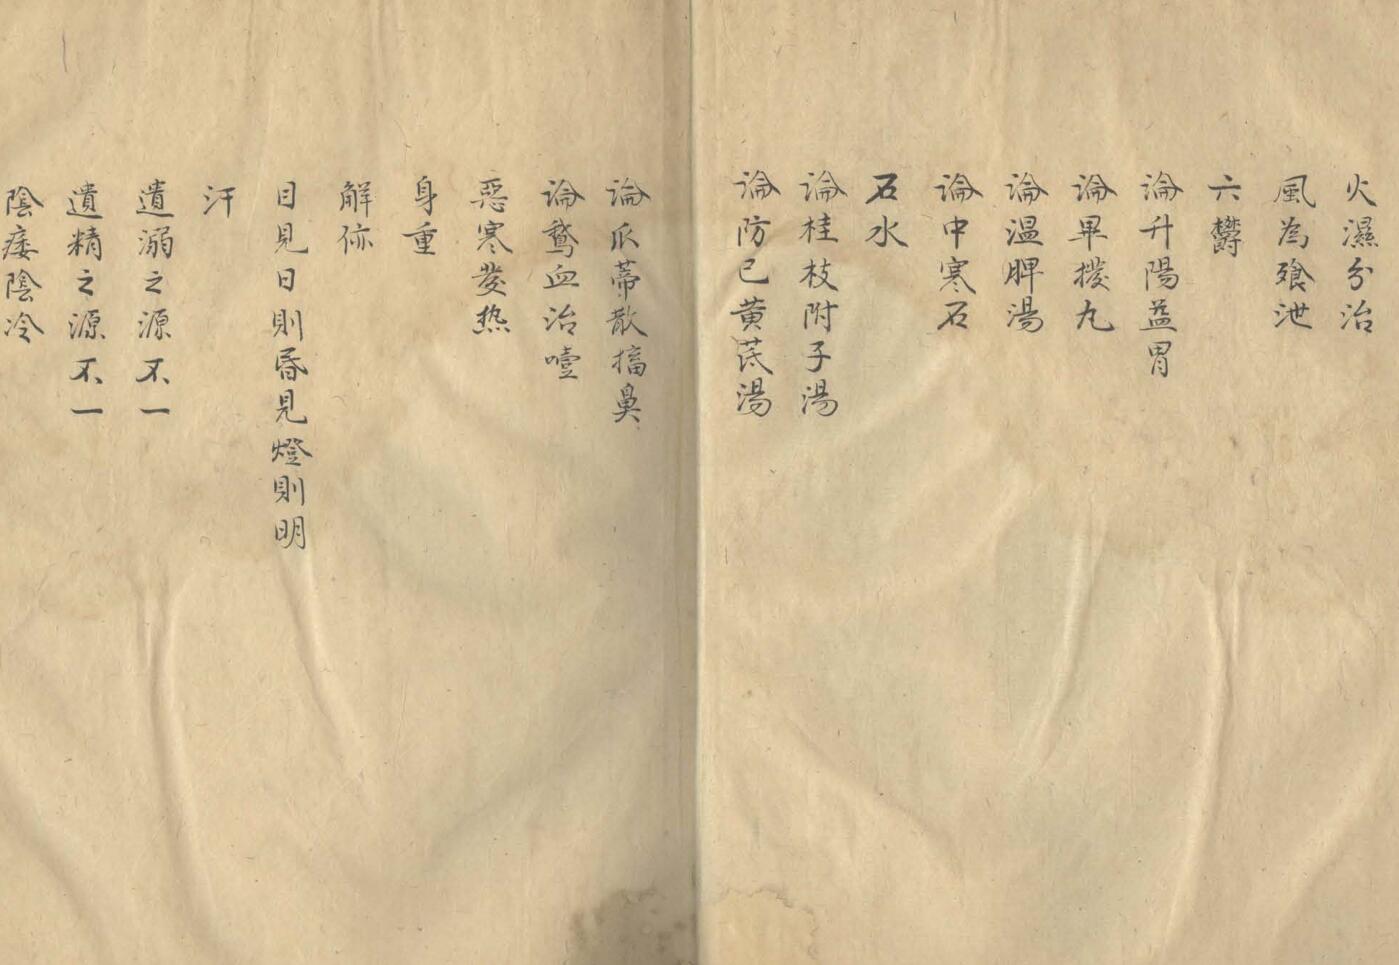 火濕分治
風為飱泄
六鬱
論升陽益胃
論畢撥丸
論温脾湯
論中寒石
石水
論桂枝附子湯
論防已黄芪湯
論瓜蒂散搐鼻
論鵞血治噎
惡寒發热
身重
解㑊
目見日則昏見燈則明
汗
遺溺之源不一
遺精之源不一
陰痿陰冷